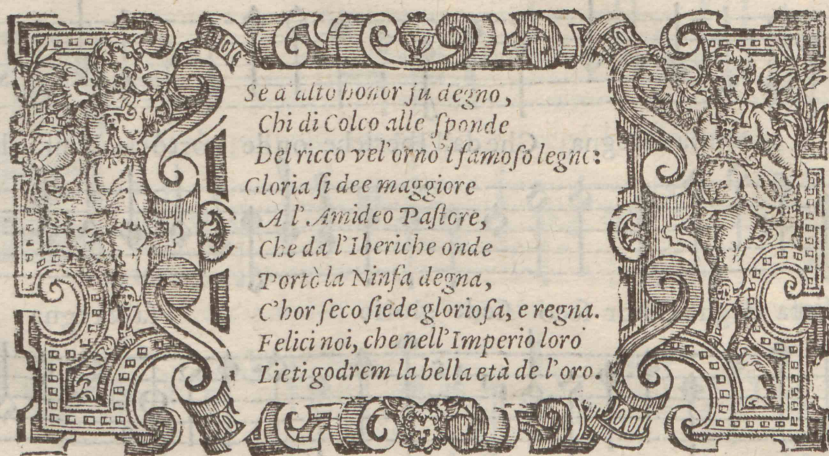 Se d'alto honor fu degno,
Chi di Colco alle sponde
Del ricco vel'ornò'l famoso legno:
Gloria si dee maggiore
A l'Amideo Pastore,
Che da l'Iberiche onde
Portò la Ninfa degna,
C'hor seco siede gloriosa, e regna.
Felici noi, che nell'Imperio loro
Lieti godrem la bella età de l'oro.